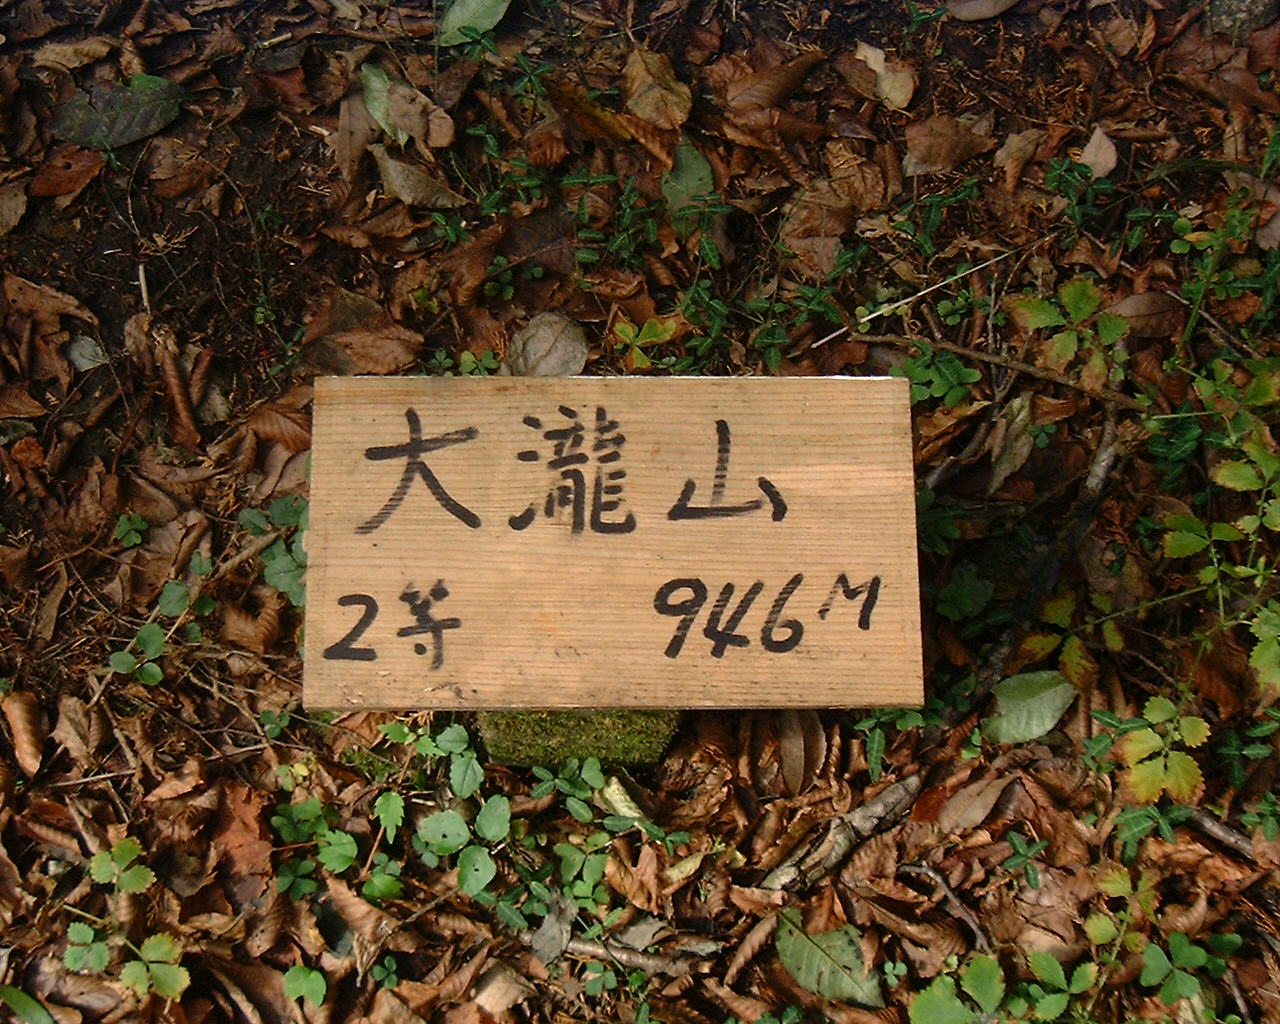 大瀧山
2等 946M